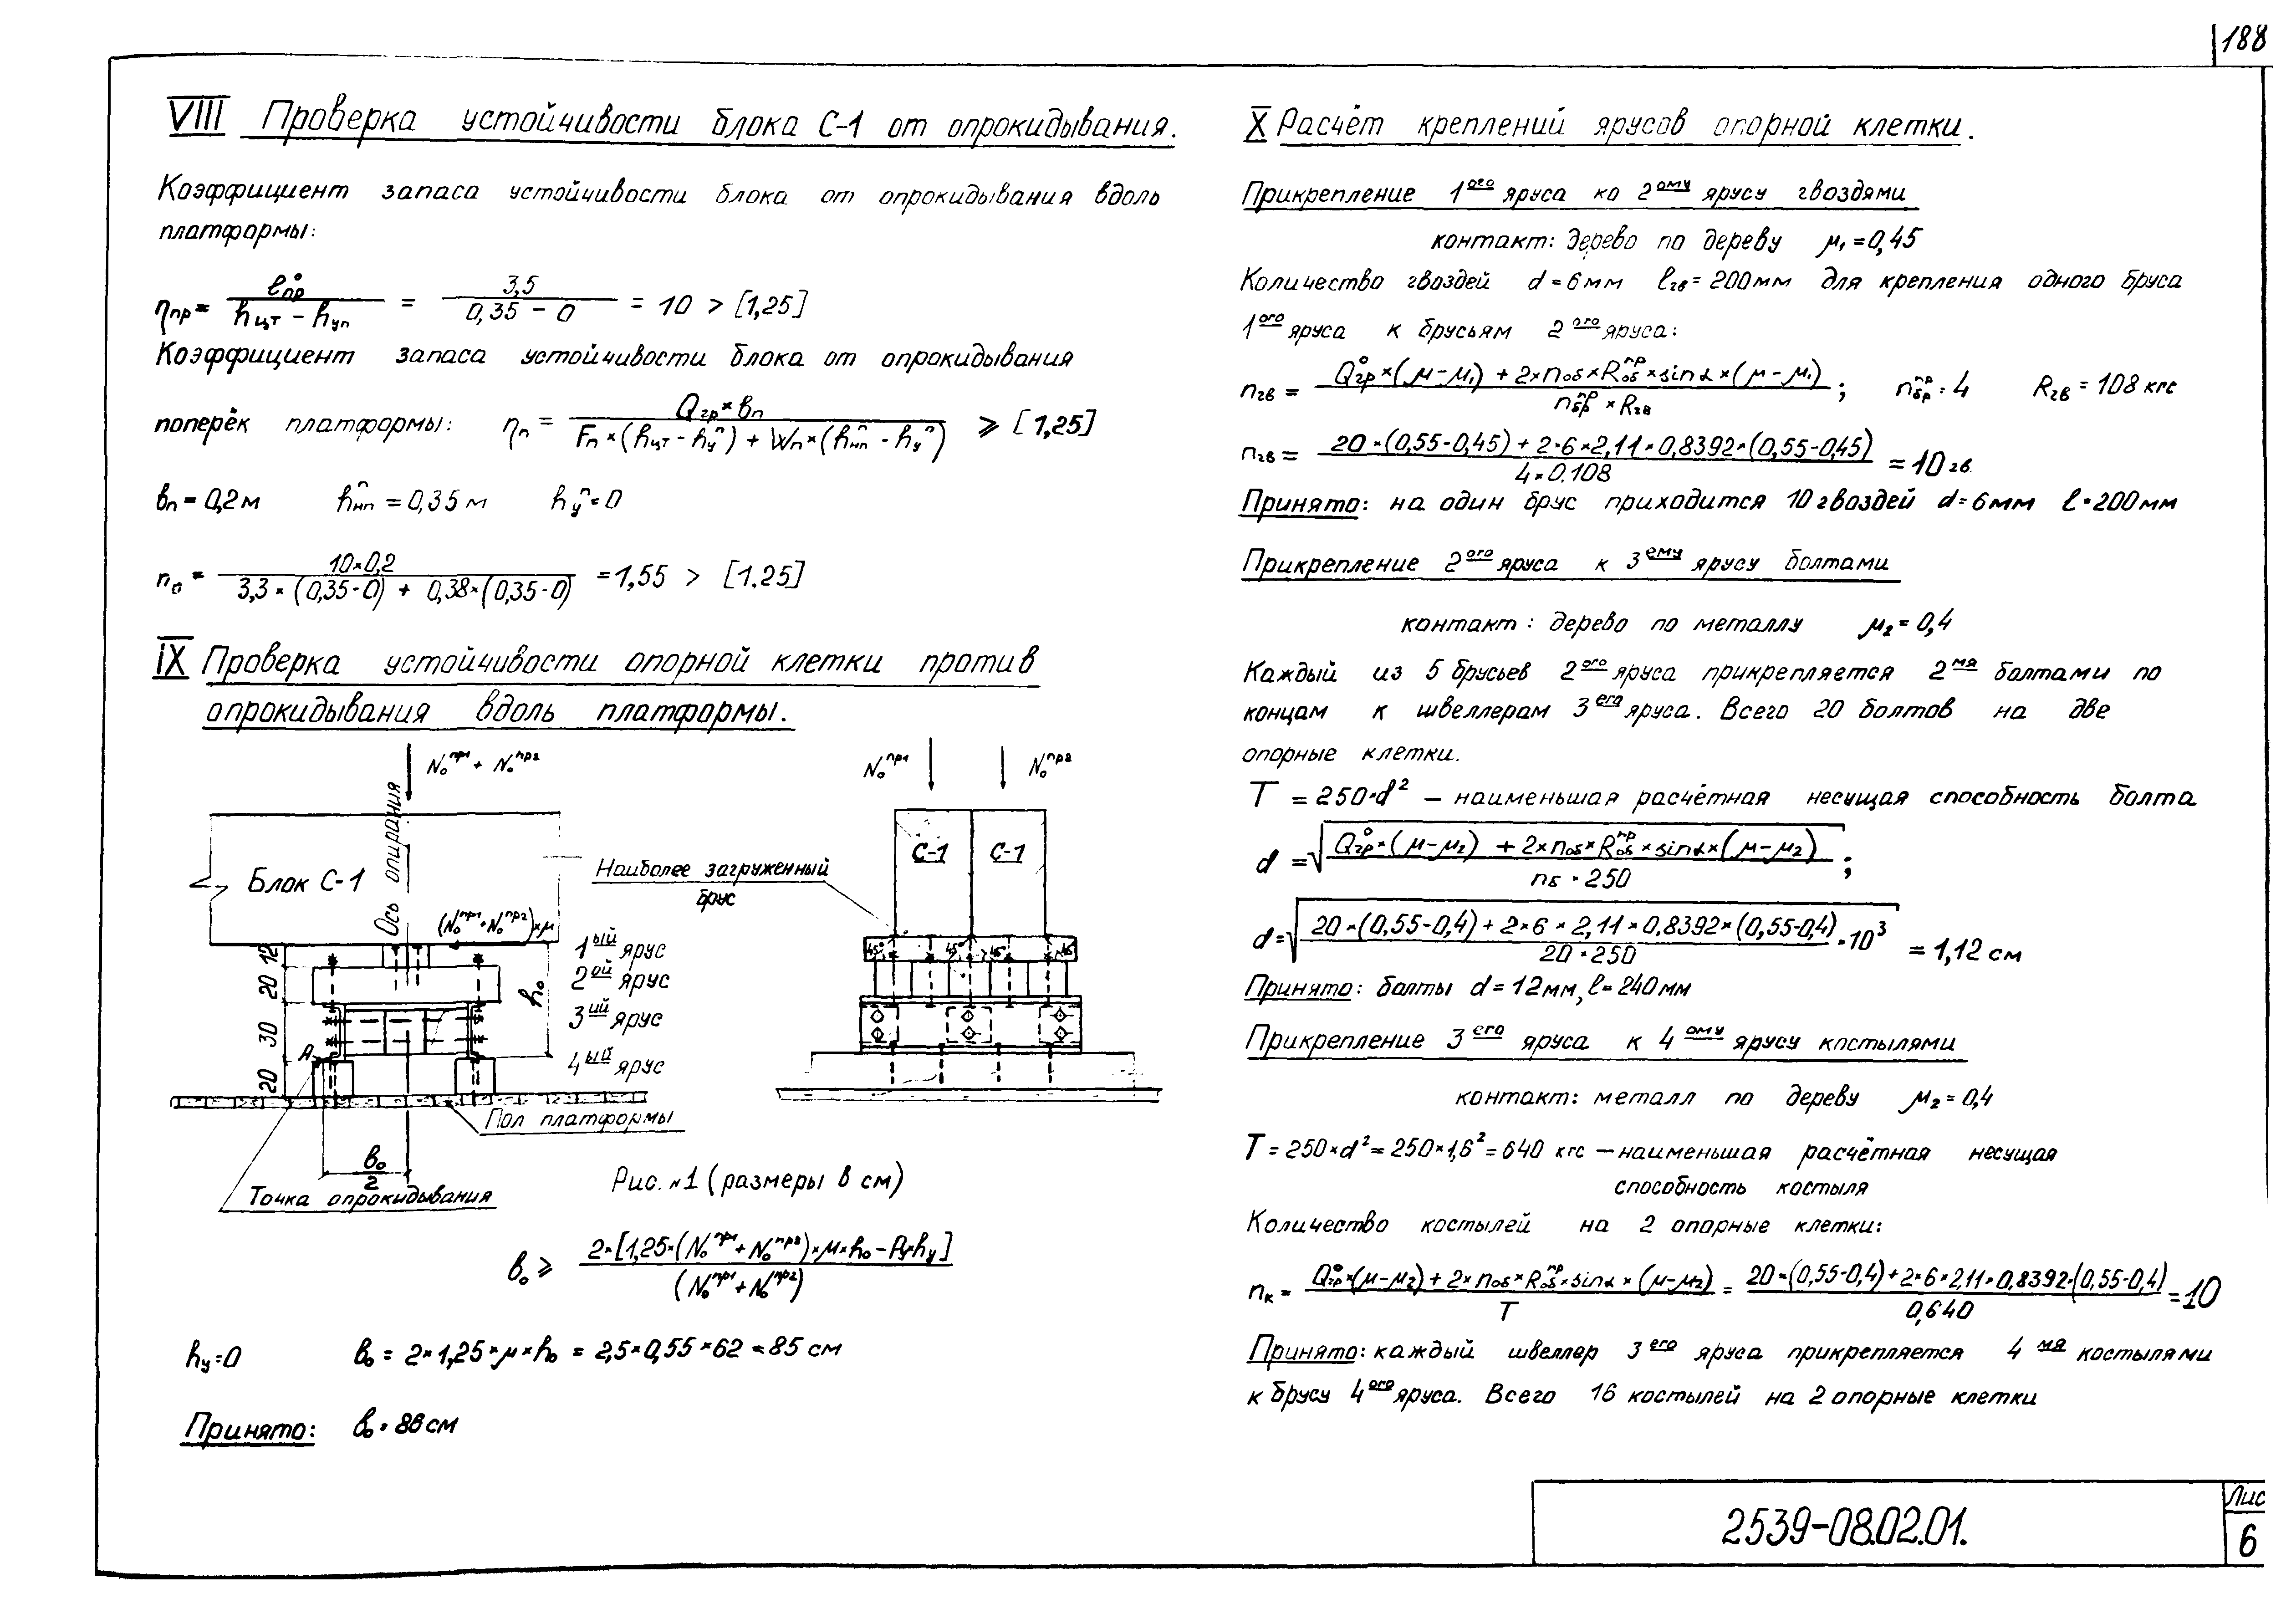 188
VIII Проверка устойчивости блока С-1 от опрокидывания.
Коэффициент запаса устойчивости блока от опрокидывания вдоль
платформы:
ηпр = l°пр / (hцт - hуп) = 3,5 / (0,35 - 0) = 10 > [1,25]
Коэффициент запаса устойчивости блока от опрокидывания
поперёк платформы: ηп = Qгр × вп / (Fп × (hцт - hуⁿ) + Wп × (hнпⁿ - hуⁿ)) ⩾ [1,25]
вп = 0,2 м hнпⁿ = 0,35 м hуⁿ = 0
n₀ = 10×0,2 / (3,3 × (0,35-0) + 0,38 × (0,35-0)) = 1,55 > [1.25]
IX Проверка устойчивости опорной клетки против
опрокидывания вдоль платформы.
N₀ пр1 + N₀ пр2
Ось опирания
Блок С-1
(N₀пр1 + N₀пр2) × μ
12
20
30
20
h₀
1ый ярус
2ой ярус
3ий ярус
4ый ярус
А
Пол платформы
в₀/2
Точка опрокидывания
Наиболее загруженный
брус
N₀ пр1
N₀ пр2
С-1
С-1
45° 45° 45° 45
Рис. №1 (размеры в см)
в₀ ⩾ 2×[1,25×(N₀пр1 + N₀пр2)×μ×h₀ - Pу×hу] / (N₀пр1 + N₀пр2)
hу = 0 в₀ = 2×1,25×μ×h₀ = 2,5×0,55×62 = 85 см
Принято: в₀ = 86 см
X Расчёт креплений ярусов опорной клетки.
Прикрепление 1ого яруса ко 2ому ярусу гвоздями
контакт: дерево по дереву μ₁ = 0,45
Количество гвоздей d = 6 мм lгв = 200 мм для крепления одного бруса
1ого яруса к брусьям 2ого яруса:
nгв = Q°гр × (μ - μ₁) + 2 × nоб × Rобпр × sin α × (μ - μ₁) / (nбрпр × Rгв) ; nбрпр = 4 Rгв = 108 кгс
nгв = 20 × (0,55-0,45) + 2×6×2,11×0,8392×(0,55-0,45) / (4×0,108) = 10 гв.
Принято: на один брус приходится 10 гвоздей d = 6 мм l = 200 мм
Прикрепление 2ого яруса к 3ему ярусу болтами
контакт: дерево по металлу μ₂ = 0,4
Каждый из 5 брусьев 2ого яруса прикрепляется 2мя болтами по
концам к швеллерам 3его яруса. Всего 20 болтов на две
опорные клетки.
T = 250×d² – наименьшая расчётная несущая способность болта
d = √(Q°гр × (μ-μ₂) + 2×nоб×Rобпр×sinα×(μ-μ₂) / (nб × 250)) ;
d = √(20×(0,55-0,4) + 2×6×2,11×0,8392×(0,55-0,4) / (20×250) × 10³) = 1,12 см
Принято: болты d = 12 мм, l = 240 мм
Прикрепление 3его яруса к 4ому ярусу костылями
контакт: металл по дереву μ₂ = 0,4
T = 250×d² = 250×1,6² = 640 кгс – наименьшая расчётная несущая
способность костыля
Количество костылей на 2 опорные клетки:
nк = Q°гр×(μ-μ₂) + 2×nоб×Rобпр×sinα×(μ-μ₂) / T = 20×(0,55-0,4) + 2×6×2,11×0,8392×(0,55-0,4) / 0,640 = 10
Принято: каждый швеллер 3его яруса прикрепляется 4мя костылями
к брусу 4ого яруса. Всего 16 костылей на 2 опорные клетки
2539-08.02.01.
Лис
6